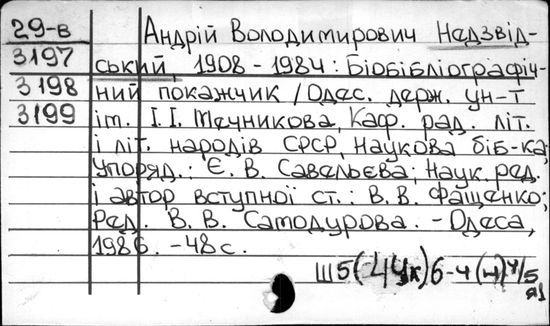 29-в Андрій Володимирович Недзвід-
3197 ський, 1908-1984: Біобібліографіч-
3198 ний покажчик / Одес. держ. ун-т
3199 ім. І.І. Мечникова, Каф. рад. літ.
і літ. народів СРСР, Наукова біб-ка;
Упоряд.: Є. В. Савельєва; Наук. ред.
і автор вступної ст.: В. В. Фащенко;
Ред. В. В. Самодурова. - Одеса,
1986. - 48 с.
Ш5(